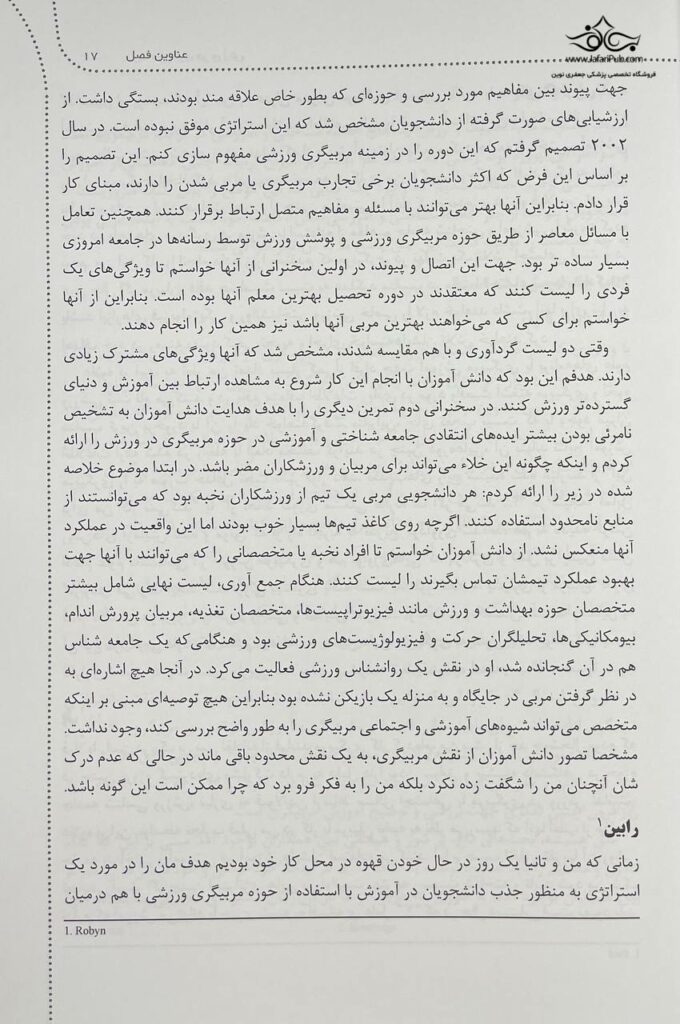 www.JafariPub.com
فروشگاه تخصصی پزشکی جعفری نوین
عناوین فصل ۱۷
جهت پیوند بین مفاهیم مورد بررسی و حوزه‌ای که بطور خاص علاقه مند بودند، بستگی داشت. از
ارزشیابی‌های صورت گرفته از دانشجویان مشخص شد که این استراتژی موفق نبوده است. در سال
۲۰۰۲ تصمیم گرفتم که این دوره را در زمینه مربیگری ورزشی مفهوم سازی کنم. این تصمیم را
بر اساس این فرض که اکثر دانشجویان برخی تجارب مربیگری یا مربی شدن را دارند، مبنای کار
قرار دادم. بنابراین آنها بهتر می‌توانند با مسئله و مفاهیم متصل ارتباط برقرار کنند. همچنین تعامل
با مسائل معاصر از طریق حوزه مربیگری ورزشی و پوشش ورزش توسط رسانه‌ها در جامعه امروزی
بسیار ساده تر بود. جهت این اتصال و پیوند، در اولین سخنرانی از آنها خواستم تا ویژگی‌های یک
فردی را لیست کنند که معتقدند در دوره تحصیل بهترین معلم آنها بوده است. بنابراین از آنها
خواستم برای کسی که می‌خواهند بهترین مربی آنها باشد نیز همین کار را انجام دهند.
وقتی دو لیست گردآوری و با هم مقایسه شدند، مشخص شد که آنها ویژگی‌های مشترک زیادی
دارند. هدفم این بود که دانش آموزان با انجام این کار شروع به مشاهده ارتباط بین آموزش و دنیای
گسترده‌تر ورزش کنند. در سخنرانی دوم تمرین دیگری را با هدف هدایت دانش آموزان به تشخیص
نامرئی بودن بیشتر ایده‌های انتقادی جامعه شناختی و آموزشی در حوزه مربیگری در ورزش را ارائه
کردم و اینکه چگونه این خلاء می‌تواند برای مربیان و ورزشکاران مضر باشد. در ابتدا موضوع خلاصه
شده در زیر را ارائه کردم: هر دانشجویی مربی یک تیم از ورزشکاران نخبه بود که می‌توانستند از
منابع نامحدود استفاده کنند. اگرچه روی کاغذ تیم‌ها بسیار خوب بودند اما این واقعیت در عملکرد
آنها منعکس نشد. از دانش آموزان خواستم تا افراد نخبه یا متخصصانی را که می‌توانند با آنها جهت
بهبود عملکرد تیمشان تماس بگیرند را لیست کنند. هنگام جمع آوری، لیست نهایی شامل بیشتر
متخصصان حوزه بهداشت و ورزش مانند فیزیوتراپیست‌ها، متخصصان تغذیه، مربیان پرورش اندام،
بیومکانیکی‌ها، تحلیلگران حرکت و فیزیولوژیست‌های ورزشی بود و هنگامی‌که یک جامعه شناس
هم در آن گنجانده شد، او در نقش یک روانشناس ورزشی فعالیت می‌کرد. در آنجا هیچ اشاره‌ای به
در نظر گرفتن مربی در جایگاه و به منزله یک بازیکن نشده بود بنابراین هیچ توصیه‌ای مبنی بر اینکه
متخصص می‌تواند شیوه‌های آموزشی و اجتماعی مربیگری را به طور واضح بررسی کند، وجود نداشت.
مشخصا تصور دانش آموزان از نقش مربیگری، به یک نقش محدود باقی ماند در حالی که عدم درک
شان آنچنان من را شگفت زده نکرد بلکه من را به فکر فرو برد که چرا ممکن است این گونه باشد.
رابین۱
زمانی که من و تانیا یک روز در حال خودن قهوه در محل کار خود بودیم هدف مان را در مورد یک
استراتژی به منظور جذب دانشجویان در آموزش با استفاده از حوزه مربیگری ورزشی با هم درمیان
1. Robyn